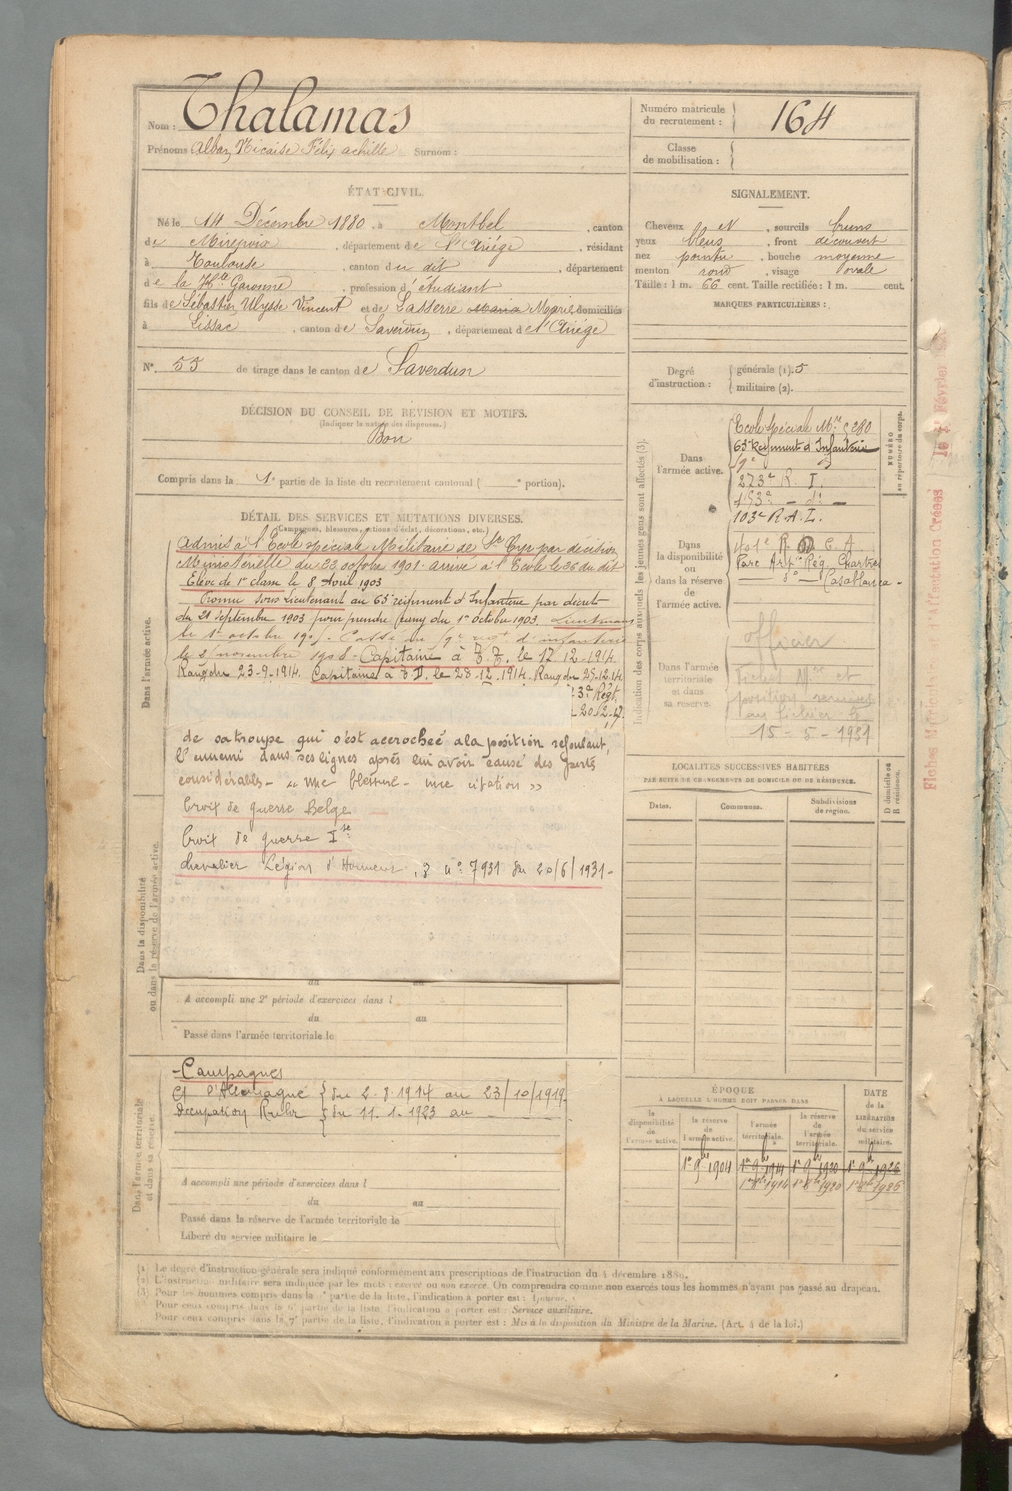 Nom : Thalamas
Prénoms Alban Nicaise Félix achille Surnom :
Numéro matricule du recrutement : 164
Classe de mobilisation :
ÉTAT CIVIL.
Né le 14 Décembre 1880, à Montbel, canton
de Mirepoix, département de l'Ariège, résidant
à Toulouse, canton du dit, département
de la Hte Garonne, profession d'étudiant
fils de Sébastien Ulysse Vincent et de Lasserre Maria Marie domiciliés
à Lissac, canton de Saverdun, département de l'Ariège
N° 55 de tirage dans le canton de Saverdun
SIGNALEMENT.
Cheveux et, sourcils bruns
yeux bleus, front découvert
nez pointu, bouche moyenne
menton rond, visage ovale
Taille : 1 m. 66 cent. Taille rectifiée : 1 m. cent.
MARQUES PARTICULIÈRES :
Degré d'instruction : générale (1). 5
militaire (2).
DÉCISION DU CONSEIL DE RÉVISION ET MOTIFS.
(Indiquer la nature des dispenses.)
Bon
Compris dans la 1e partie de la liste du recrutement cantonal ( e portion).
DÉTAIL DES SERVICES ET MUTATIONS DIVERSES.
(Campagnes, blessures, actions d'éclat, décorations, etc.)
Dans l'armée active.
Admis à l'École spéciale Militaire de St Cyr par décision
Ministérielle du 23 octobre 1901 arrivé à l'École le 26 du dit
Élève de 1re classe le 8 Avril 1903
Promu sous Lieutenant au 63e régiment d'Infanterie par décret
du 21 septembre 1903 pour prendre rang du 1er octobre 1903. Lieutenant
le 1er octobre 1905. Passé au 9e regt d'infanterie
le 2 novembre 1908 - Capitaine à T.T. le 17.12.1914.
Rang du 23-9-1914. Capitaine à T.D. le 28.12.1914. Rang du 25.12.14
de sa troupe qui s'est accrochée a la position refoulant
l'ennemi dans ses lignes après lui avoir causé des pertes
considérables - une blessure - une citation »
Croix de guerre Belge
Croix de guerre
Chevalier Légion d'Honneur. n° 7931 du 20/6/1931 -
Dans la disponibilité ou dans la réserve de l'armée active.
du au
A accompli une 2e période d'exercices dans l
du au
Passé dans l'armée territoriale le
Dans l'armée territoriale et dans sa réserve.
- Campagnes
Ct d'Allemagne { du 2.8.1914 au 23/10/1919.
Occupation Ruhr { du 11.1.1923 au
A accompli une période d'exercices dans l
du au
Passé dans la réserve de l'armée territoriale le
Libéré du service militaire le
Indication des corps auxquels les jeunes gens sont affectés (3).
NUMÉRO au répertoire du corps.
Dans l'armée active.
École spéciale Mre 280
63e Régiment d'Infanterie
9e
273e R. I.
453e - do -
103e R.A.L.
Dans la disponibilité ou dans la réserve de l'armée active.
401e R. C. A
Parc Artie Rég. Chartres
do Casablanca -
Dans l'armée territoriale et dans sa réserve.
officier
Fichet Mle et
position remises
au fichier le
15-5-1931
LOCALITÉS SUCCESSIVES HABITÉES
PAR SUITE DE CHANGEMENTS DE DOMICILE OU DE RÉSIDENCE.
Dates. Communes. Subdivisions de région. D domicile ou R résidence.
ÉPOQUE
À LAQUELLE L'HOMME DOIT PASSER DANS
la disponibilité de l'armée active. la réserve de l'armée active. l'armée territoriale. la réserve de l'armée territoriale. DATE de la LIBÉRATION du service militaire.
1er 9bre 1904 1er 9bre 1914 1er 9bre 1920 1er 9bre 1926
(1) Le degré d'instruction générale sera indiqué conformément aux prescriptions de l'instruction du 4 décembre 1889.
(2) L'instruction militaire sera indiquée par les mots : exercé ou non exercé. On comprendra comme non exercés tous les hommes n'ayant pas passé au drapeau.
(3) Pour les hommes compris dans la partie de la liste, l'indication à porter est :
Pour ceux compris dans la 6e partie de la liste, l'indication à porter est : Service auxiliaire.
Pour ceux compris dans la 7e partie de la liste, l'indication à porter est : Mis à la disposition du Ministre de la Marine. (Art. 4 de la loi.)